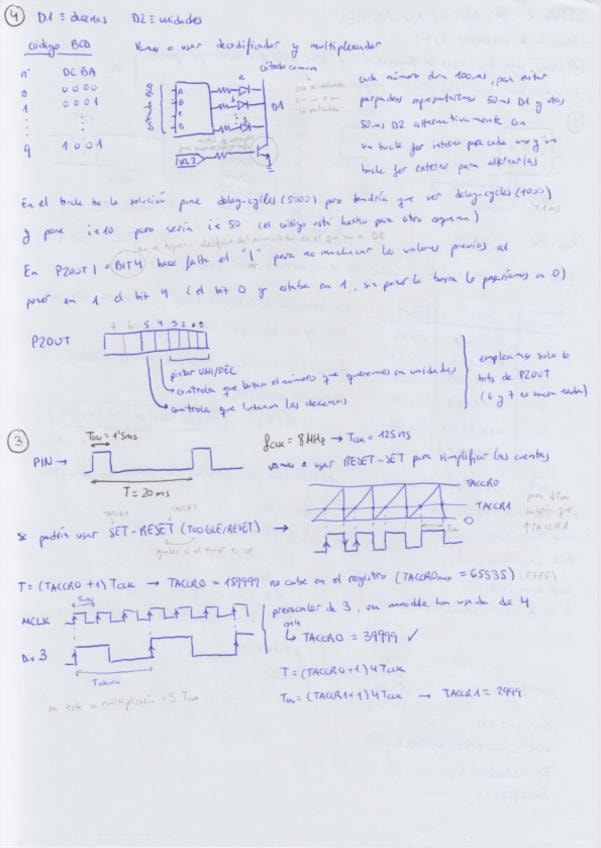 ④ D1 ≡ decenas D2 ≡ unidades
código BCD Vamos a usar decodificador y multiplexador
nº DCBA
cátodo común
0 0000
1 0001
9 1001
A
B
C
D
a
D1
cada número dura 100ms, para evitar
parpadeos representaremos 50ms D1 y otros
50ms D2 alternativamente con
un bucle for interno para cada uno y un
bucle for externo para alternarlos
En el bucle de la solución pone delay-cycles (5000) pero tendría que ser delay-cycles (1000)
y pone i<10 pero sería i<50 (el código está hecho para otro esquema)
En P2OUT |= BIT4 hace falta el "|" para no machacar los valores previos al
poner en 1 el bit 4 (el bit 0 y estaba en 1, sin poner la barra lo pasaríamos a 0)
P2OUT
7 6 5 4 3 2 1 0
pintar UNI/DEC
controla que luzca el número que queremos en unidades
controla que luzcan las decenas
empleamos solo 6
bits de P2OUT
(6 y 7 no hacen nada)
③ Ton = 1'5ms
fclk = 8MHz → Tclk = 125ns
PIN →
vamos a usar RESET-SET para simplificar las cuentas
T = 20ms
TACCR0
TACCR1
0
Se podría usar SET-RESET (TOGGLE/RESET) →
T = (TACCR0 + 1) Tclk → TACCR0 = 159999 no cabe en el registro (TACCR0max = 65535)
MCLK
Div 3
prescaler de 3, en moodle han usado de 4
↳ TACCR0 = 39999 ✓
T = (TACCR0+1) 4 Tclk
Ton = (TACCR1+1) 4 Tclk → TACCR1 = 2999